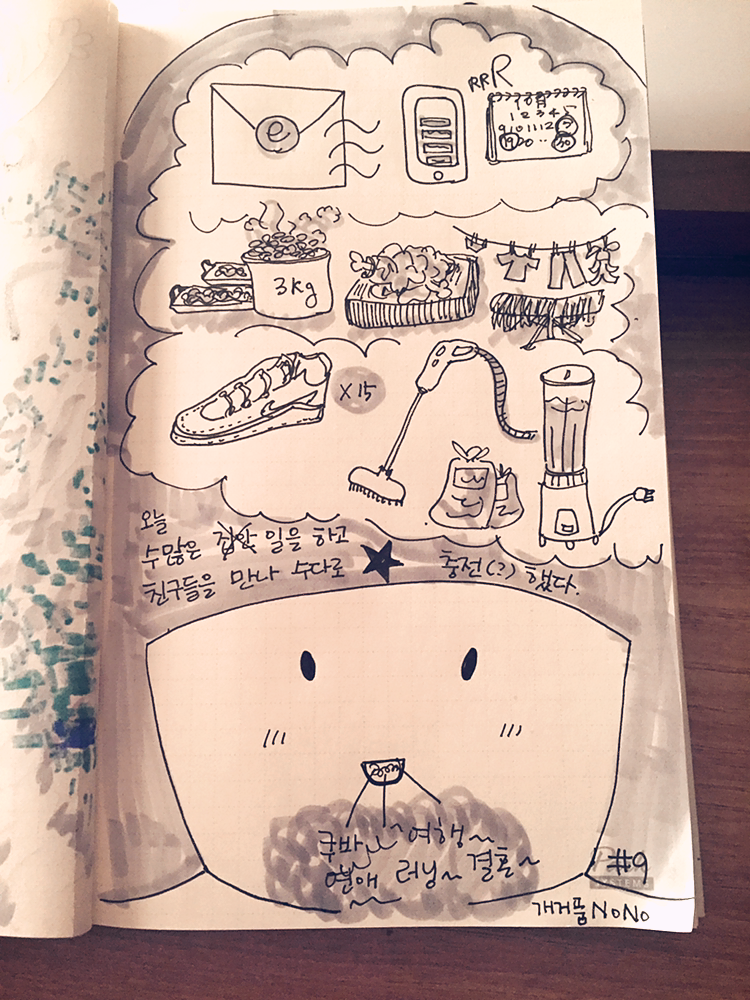 e
RRR
10월
1 2 3 4 5
9 10 11 12
19 20 .. 30
3kg
x 15
오늘
수많은 집안 일을 하고
친구들을 만나 수다로 ★ 충전(?) 했다.
쿠바~ 여행~
연애 러닝~ 결혼~
#9
SYSTEM
개거품 NoNo